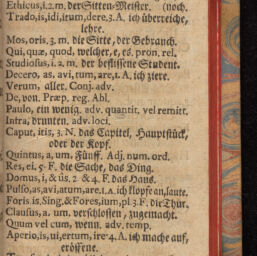 Ethicus, i. 2. m. der Sitten-Meister. (noch.
Trado, is, idi, itum, dere, 3. A. ich überreiche,
lehre.
Mos, oris. 3. m. die Sitte, der Gebrauch.
Qui, quæ, quod, welcher, e, es. pron. rel.
Studiosus, i. 2. m. der beflissene Student.
Decero, as. avi, tum, are, 1. A. ich ziere.
Verum, aller. Conj. adv.
De, von. Præp. reg. Abl.
Paulo, ein wenig. adv. quantit. vel remitt.
Infra, drunten. adv. loci.
Caput, itis, 3. N. das Capitel, Hauptstück,
oder der Kopf.
Quintus, a, um. Fünff. Adj. num. ord.
Res, ei. 5. F. die Sache, das Ding.
Domus, i, & ûs. 2. & 4. F. das Haus.
Pulso, as, avi, atum, are. 1. A. ich klopfe an, laute.
Foris. is. Sing. & Fores, ium, pl. 3. F. die Thür.
Clausus, a. um. verschlossen, zugemacht.
Quum vel cum, wenn. adv. temp.
Aperio, is, ui, ertum, ire. 4. A. ich mache auf,
eröffene.